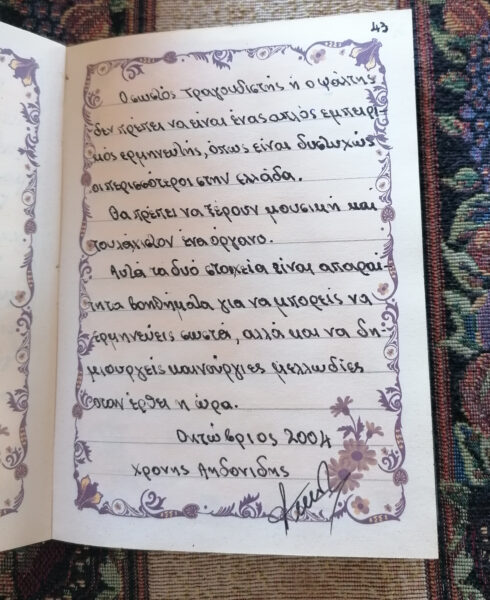 43
Ο σωστός τραγουδιστής ή ο ψάλτης
δεν πρέπει να είναι ένας απλός εμπειρι
κός ερμηνευτής, όπως είναι δυστυχώς
οι περισσότεροι στην ελλάδα.
Θα πρέπει να ξέρουν μουσική και
τουλάχιστον ένα όργανο.
Αυτά τα δυό στοιχεία είναι απαραί-
τητα βοηθήματα για να μπορείς να
ερμηνεύεις σωστά, αλλά και να δη
μιουργείς καινούργιες μελλωδίες
όταν έρθει η ώρα.
Οκτώβριος 2004
Χρονης Αηδονιδης